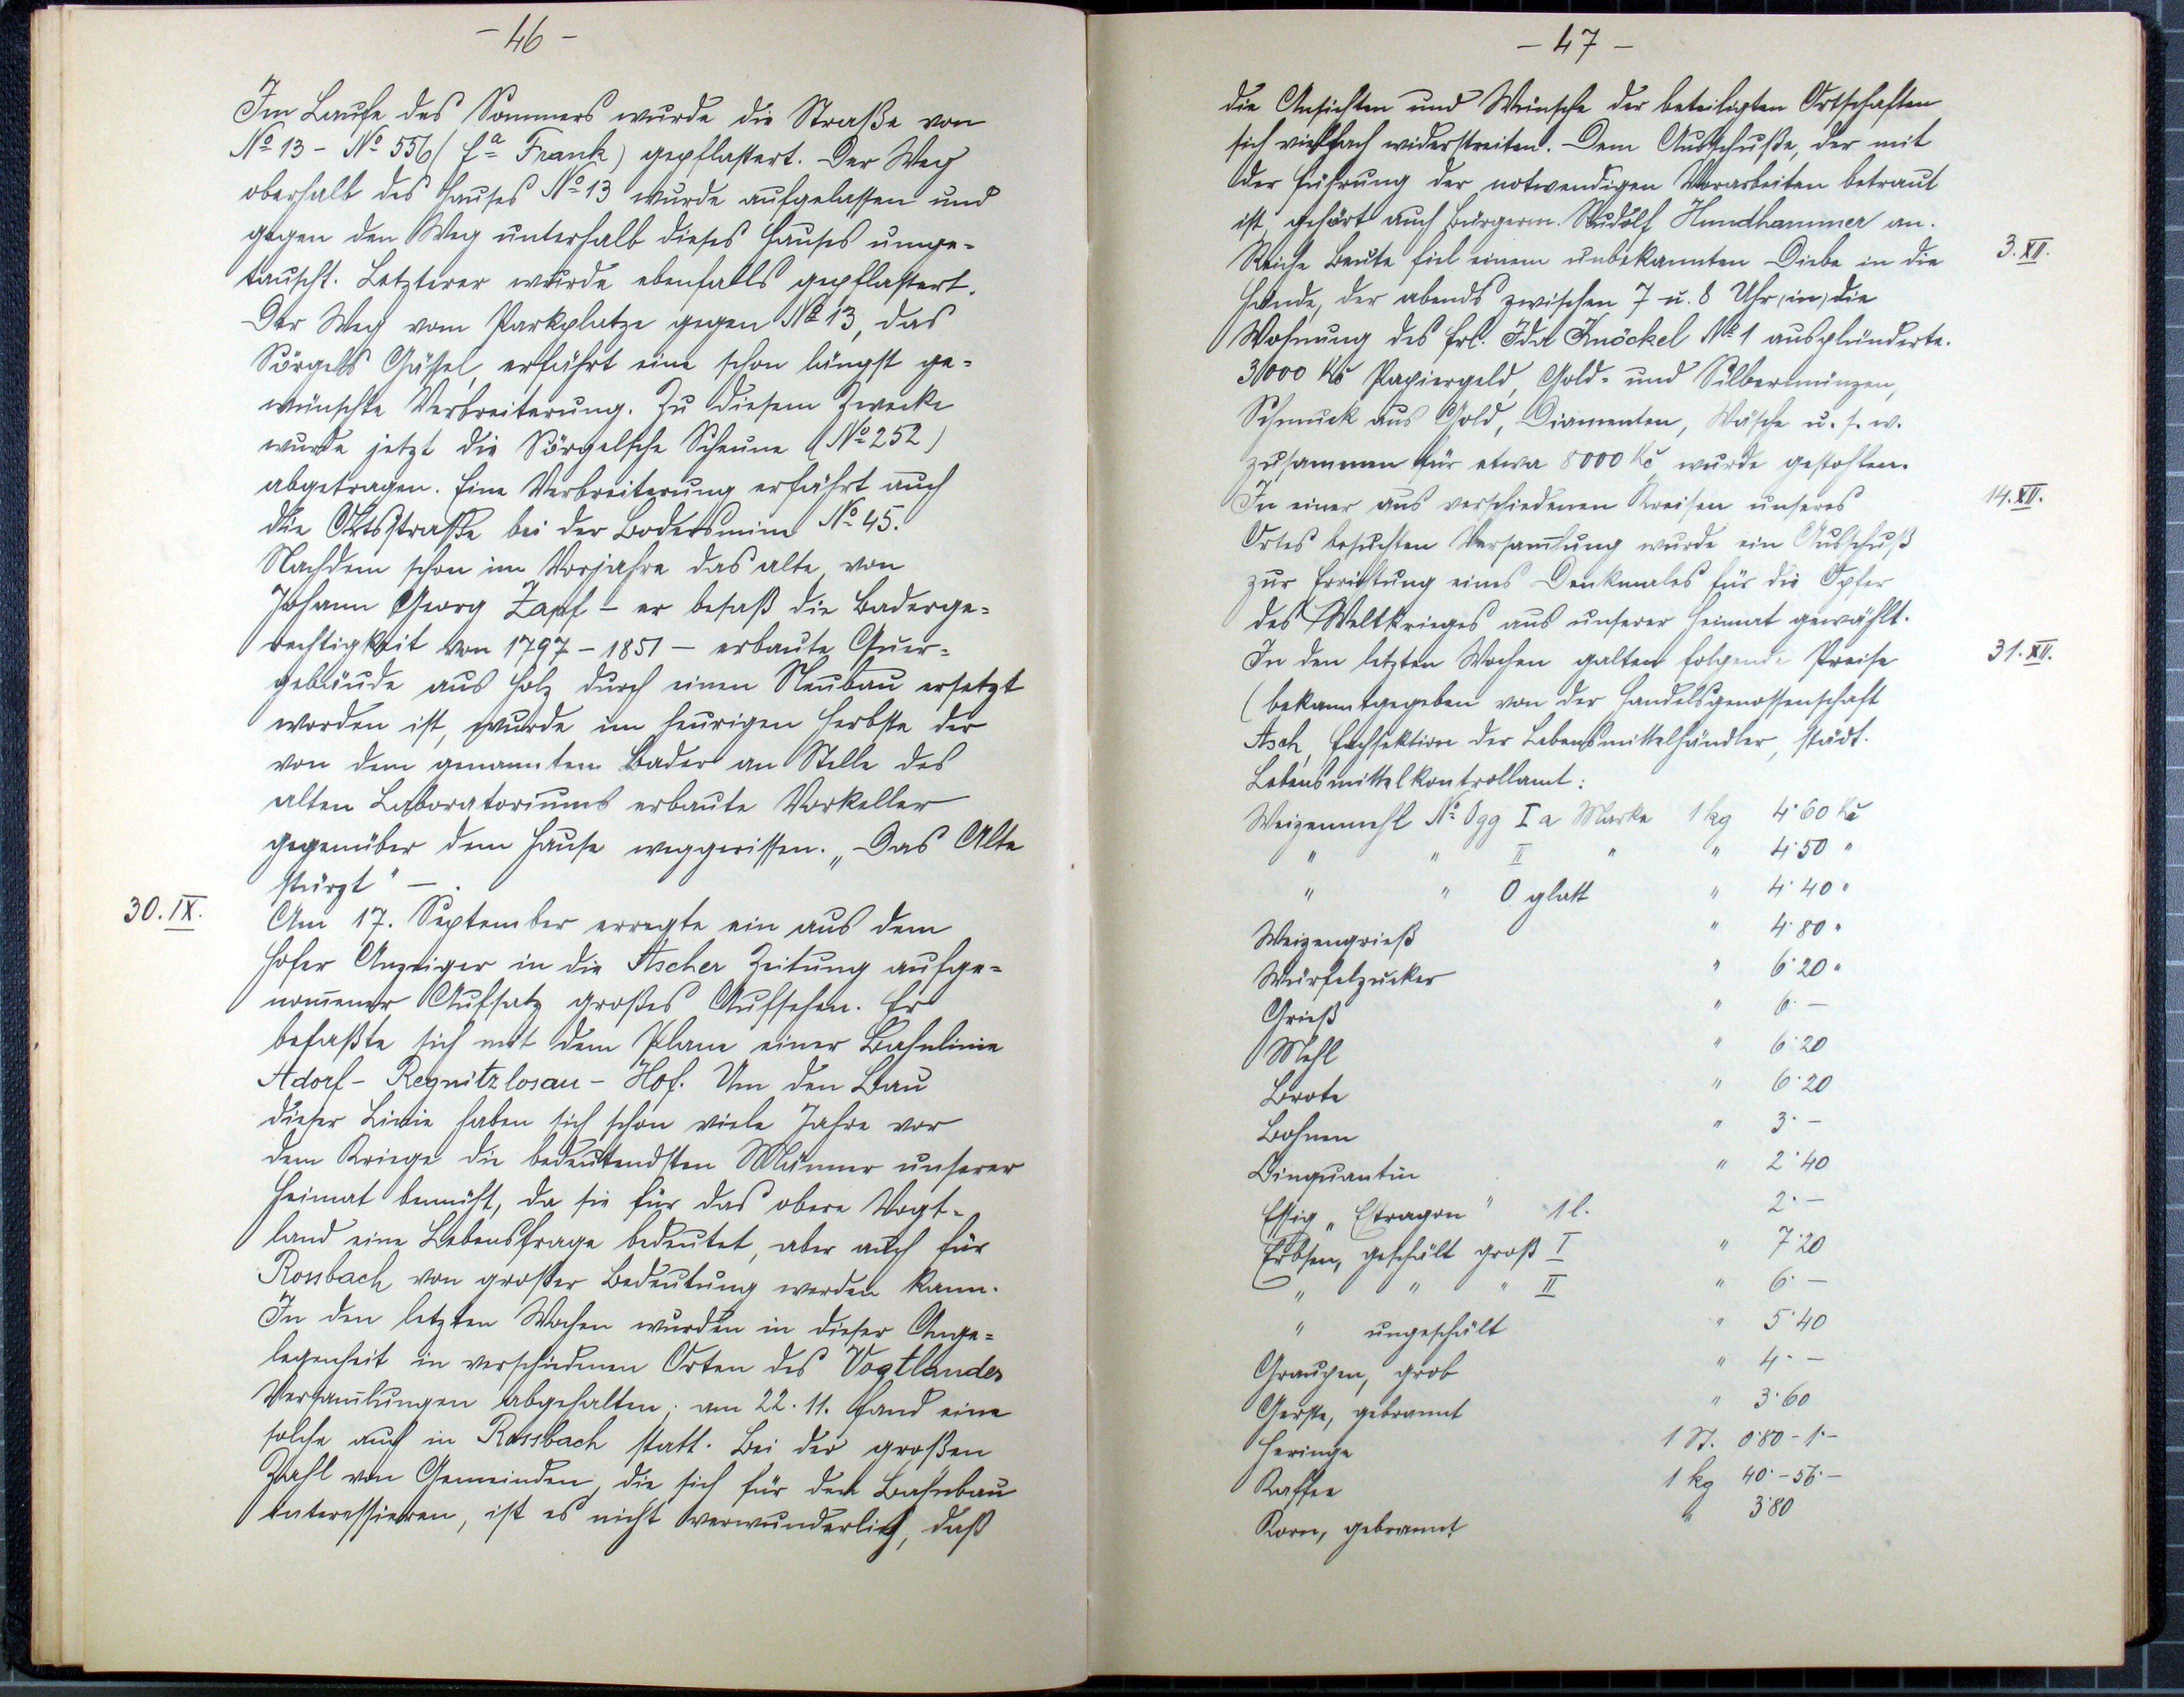 - 46 -
Im Laufe des Sommers wurde die Straße von
No 13 - No 556 (Fa Frank) gepflastert. Der Weg
oberhalb des Hauses No 13 wurde aufgelassen und
gegen den Weg unterhalb dieses Hauses umge=
tauscht. Letzterer wurde ebenfalls gepflastert.
Der Weg vom Parkplatze gegen No 13, das
Sörgels Gässel, erfährt eine schon längst ge=
wünschte Verbreiterung. Zu diesem Zwecke
wurde jetzt die Sörgelsche Scheune (No 252)
abgetragen. Eine Verbreiterung erfährt auch
die Ortsstraße bei der No 45.
Nachdem schon im Vorjahre das alte, von
Johann Georg Zapf - er besaß die Baderge=
rechtigkeit von 1797 - 1851 - erbaute Quer=
gebäude aus Holz durch einen Neubau ersetzt
worden ist, wurde im heurigen Herbste der
von dem genannten Bader an Stelle des
alten Laboratoriums erbaute Vorkeller
gegenüber dem Hause weggerissen. „Das Alte
stürzt" -.
30. IX.
Am 17. September erregte ein aus dem
Hofer Anzeiger in die Ascher Zeitung aufge=
nom̄ener Aufsatz großes Aufsehen. Er
befaßte sich mit dem Plane einer Bahnlinie
Adorf - Regnitzlosau - Hof. Um den Bau
dieser Linie haben sich schon viele Jahre vor
dem Kriege die bedeutendsten Männer unserer
Heimat bemüht, da sie für das obere Vogt=
land eine Lebensfrage bedeutet, aber auch für
Rossbach von großer Bedeutung werden kann.
In den letzten Wochen wurden in dieser Ange=
legenheit in verschiedenen Orten des Vogtlandes
Versam̄lungen abgehalten; am 22. 11. fand eine
solche auch in Rossbach statt. Bei der großen
Zahl von Gemeinden, die sich für den Bahnbau
interessieren, ist es nicht verwunderlich, daß
- 47 -
die Ansichten und Wünsche der beteiligten Ortschaften
sich vielfach widerstreiten. Dem Ausschuße, der mit
der Führung der notwendigen Vorarbeiten betraut
ist, gehört auch Bürgerm. Rudolf Hundhammer an.
Reiche Beute fiel einem unbekannten Diebe in die
3. XII.
Hände, der abends zwischen 7 u. 8 Uhr, in, die
Wohnung des Frl. Ida Knöckel No 1 ausplünderte.
3000 Kč Papiergeld, Gold- und Silbermünzen,
Schmuck aus Gold, Diamenten, Wäsche u. s. w.
zusammen für etwa 8000 Kč, wurde gestohlen.
In einer aus verschiedenen Kreisen unseres
14. XII.
Ortes besuchten Versam̄lung wurde ein Ausschuß
zur Errichtung eines Denkmales für die Opfer
des Weltkrieges aus unserer Heimat gewählt.
In den letzten Wochen galten folgende Preise
31. XII.
(bekanntgegeben von der Handelsgenossenschaft
Asch, Fachsektion der Lebensmittelhändler, städt.
Lebensmittelkontrollamt:
Weizenmehl No 0gg I a Marke 1 kg 4·60 Kč
" " II " " 4·50 "
" " 0 glatt " 4·40 "
Weizengrieß " 4·80 "
Würfelzucker " 6·20 "
Grieß " 6·-
Mehl " 6·20
Brote " 6·20
Bohnen " 3·-
Cinquantin " 2·40
Essig „Estragon" 1 l. 2·-
Erbsen, geschält groß I " 7·20
" " " II " 6·-
" ungeschält " 5·40
Graupen, grob " 4·-
Gerste, gebrannt " 3·60
Heringe 1 St. 0·80 - 1·-
Kaffee 1 kg 40·- 56·-
Korn, gebrannt " 3·80